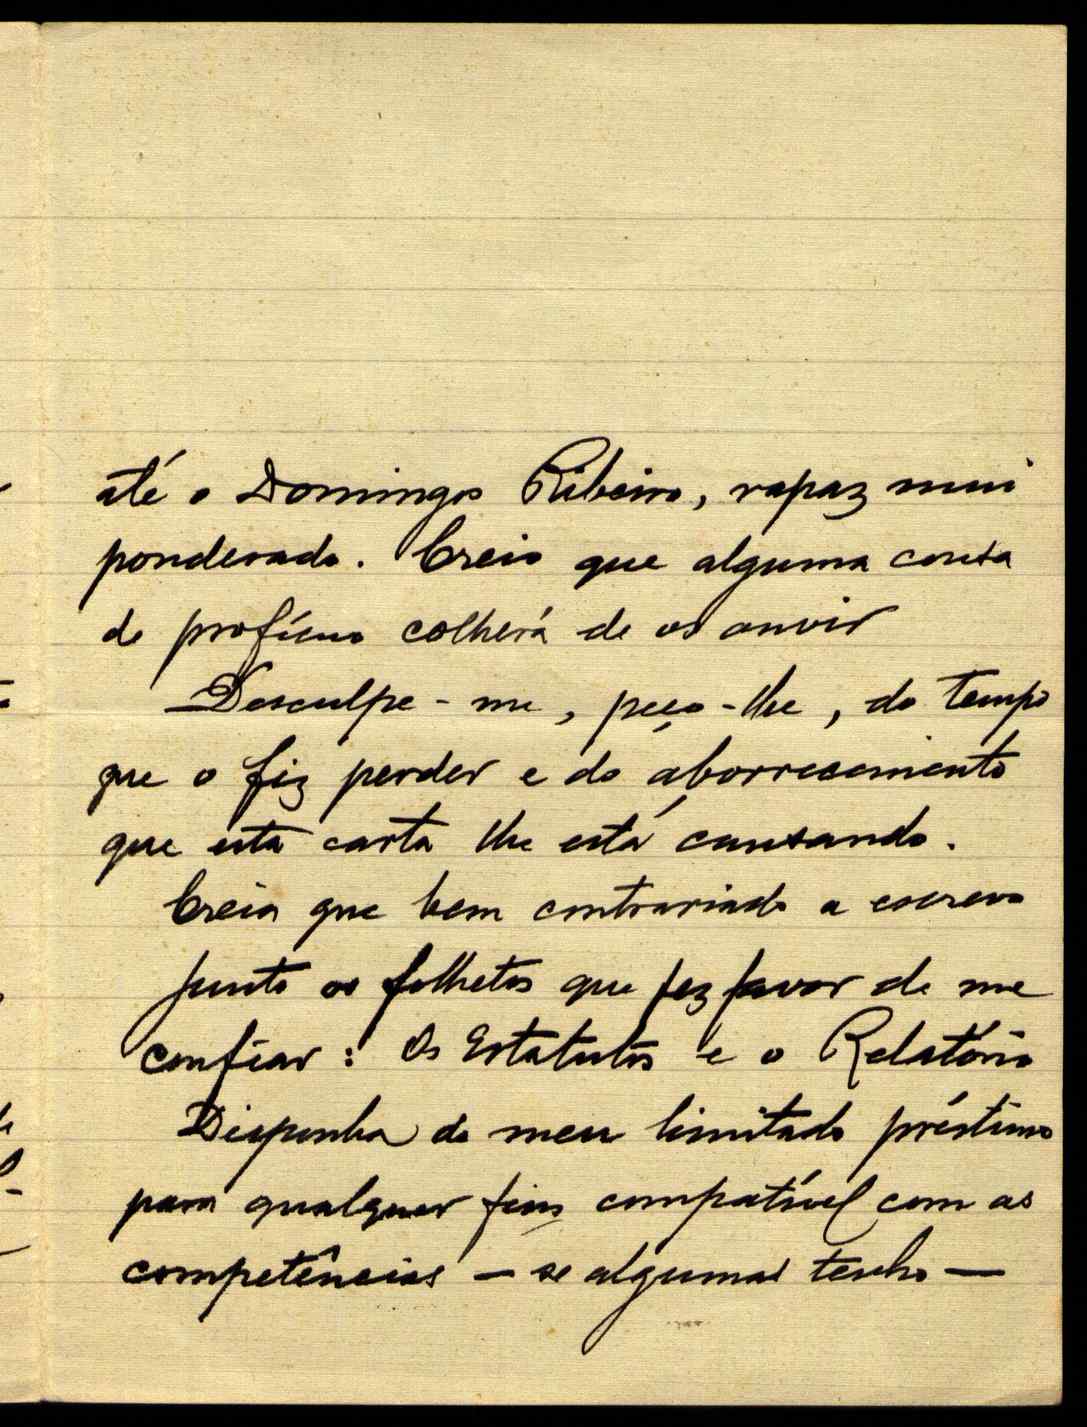 até o Domingos Ribeiro, rapaz mui
ponderado. Creio que alguma cousa
de profícuo colherá de os ouvir
Desculpe-me, peço-lhe, do tempo
que o fiz perder e do aborrecimento
que esta carta lhe está causando.
Creia que bem contrariado a escrevo
Junto os folhetos que fez favor de me
confiar: Os Estatutos e o Relatório
Disponha do meu limitado préstimo
para qualquer fim compatível com as
competências — se algumas tenho —